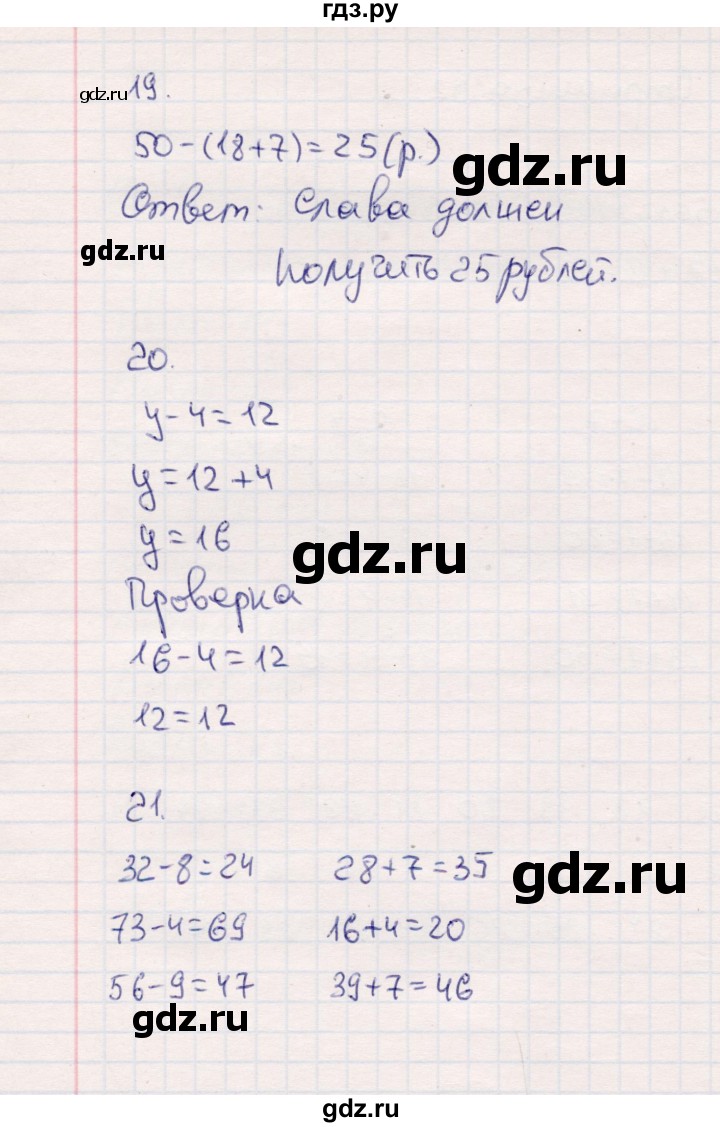 гдз.ру
gdz.ru
19.
50-(18+7)=25(р.)
gdz.ru
Ответ: Слава должен
gdz.ru
получить 25 рублей.
20.
y-4=12
y=12+4
y=16
gdz.ru
Проверка
16-4=12
12=12
21.
32-8=24 28+7=35
gdz.ru
73-4=69 16+4=20
56-9=47 39+7=46
gdz.ru
gdz.ru